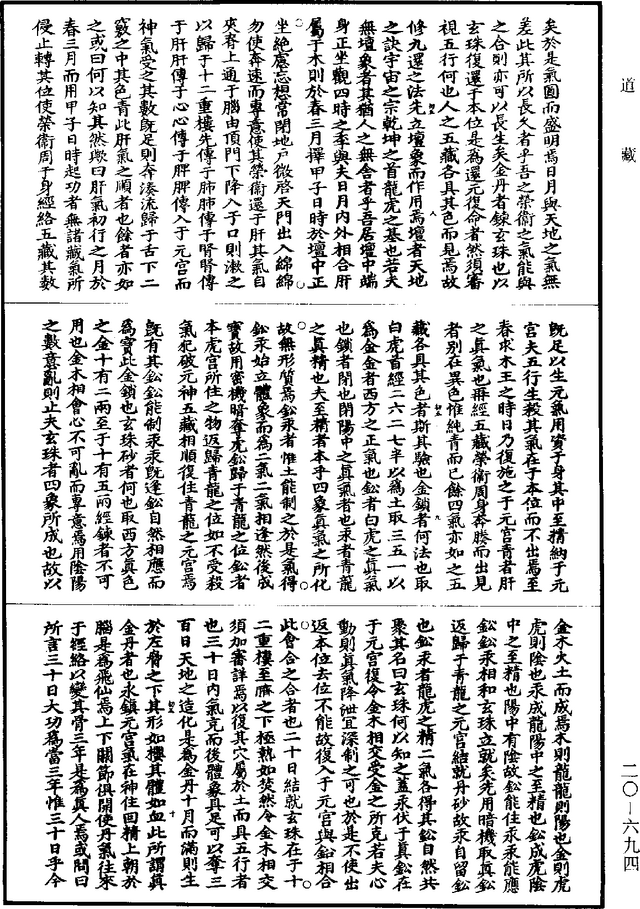 道藏
矣於是氣圓而盛明焉日月與天地之氣無
差此其所以長久者乎吾之榮衛之氣能與
之合則亦可以長生矣金丹者鍊玄珠也以
玄珠復還于本位是為還元復命者然須審
視五行何也人之五藏各具其色而見焉故
修九還之法先立壇象而作用焉壇者天地
之訣宇宙之宗乾坤之首龍虎之基也若夫
無壇象者其猶人之無舍者乎吾居壇中端
身正坐觀四時之季與夫日月內外相合肝
屬于木則於春三月擇甲子日時於壇中正
坐絕慮忘想常閉地戶微啓天門出入綿綿
勿使奔速而專意使其榮衛還于肝其氣自
夾脊上通于腦由頂門下降入于口則漱之
以歸于十二重樓先傳于肺肺傳于腎腎傳
于肝肝傳于心心傳于脾脾傳入于元宮而
神氣受之其數既足則奔湊流歸于舌下二
竅之中其色青此肝氣之順者也餘者亦如
之或曰何以知其然歟曰肝氣初行之月於
春三月而用甲子日時起功者無諸藏氣所
侵止轉其位使榮衛周于身經絡五藏其數
既足以生元氣用資于身其中至精納于元
宮夫五行生殺其氣在于本位而不出焉至
春求木王之時日乃復施之于元宮青者肝
之真氣也再經五藏榮衛周身奔騰而出見
者別在異色惟純青而已餘四氣亦如之五
藏各具其色者斯其驗也金鎖者何法也取
白虎首經二六二七半以為土取三五一以
為金金者西方之正氣也鈆者白虎之真氣
也鎖者閉也閉陽中之真氣者也汞者青龍
之真精也夫至精者本乎四象真氣之所化
故無形質焉鈆汞者惟土能制之於是氣得
鈆汞始立體象而為二氣二氣相逢然後成
寶故用密機暗奪虎鈆歸于青龍之位鈆者
本虎宮所住之物返歸青龍之位如不受殺
氣犯破元神五藏相順復住青龍之元宮焉
既有其鈆鈆能制汞汞既逢鈆自然相應而
為寶此金鎖也玄珠砂者何也取西方真色
之金十有二兩至于十有五兩經鍊者不可
用也金木相會心不可亂而專意焉用陰陽
之數意亂則止夫玄珠者四象所成也故以
金木火土而成焉木則龍龍則陽也金則虎
虎則陰也汞成龍陽中之至精也鈆成虎陰
中之至精也陽中有陰故鈆能住汞汞能應
鈆鈆汞相和玄珠立就矣先用暗機取真鈆
返歸于青龍之元宮結就丹砂故汞自留鈆
也鈆汞者龍虎之精二氣各得其鈆自然共
聚其名曰玄珠何以知之蓋汞伏于真鈆在
于元宮復令金木相交受金之所克若夫心
動則真氣降泄宜深制之可也於是不使出
返本位去位不能故復入于元宮與鉛相合
此會合之合者也二十日結就玄珠在于十
二重樓至臍之下極熱如焚然令金木相交
須加審詳焉以復其穴屬於土而具五行者
也三十日內氣克而後體象具足可以奪三
百日天地之造化是為金丹十月而滿則生
於左脅之下其形如樓其體如血此所謂真
金丹者也永鎮元宮氣在神住回精上朝於
腦是為飛仙焉上下關節俱開使丹氣往來
于經絡以變其骨三年是為真人焉或問曰
所言三十日大功焉當三年惟三十日乎今
二〇—六九四